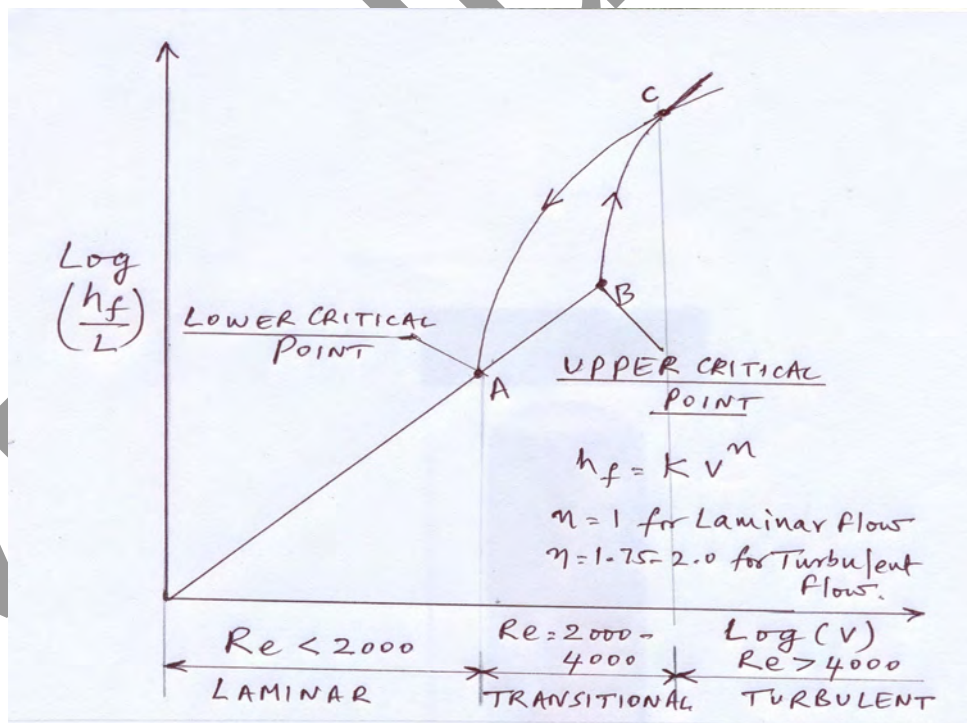 C
Log
(hf/L)
LOWER CRITICAL
POINT
B
A
UPPER CRITICAL
POINT
hf = K v^n
n=1 for Laminar flow
n=1.75-2.0 for Turbulent
Flow.
Log (v)
Re < 2000
Re = 2000-
4000
Re > 4000
LAMINAR
TRANSITIONAL
TURBULENT